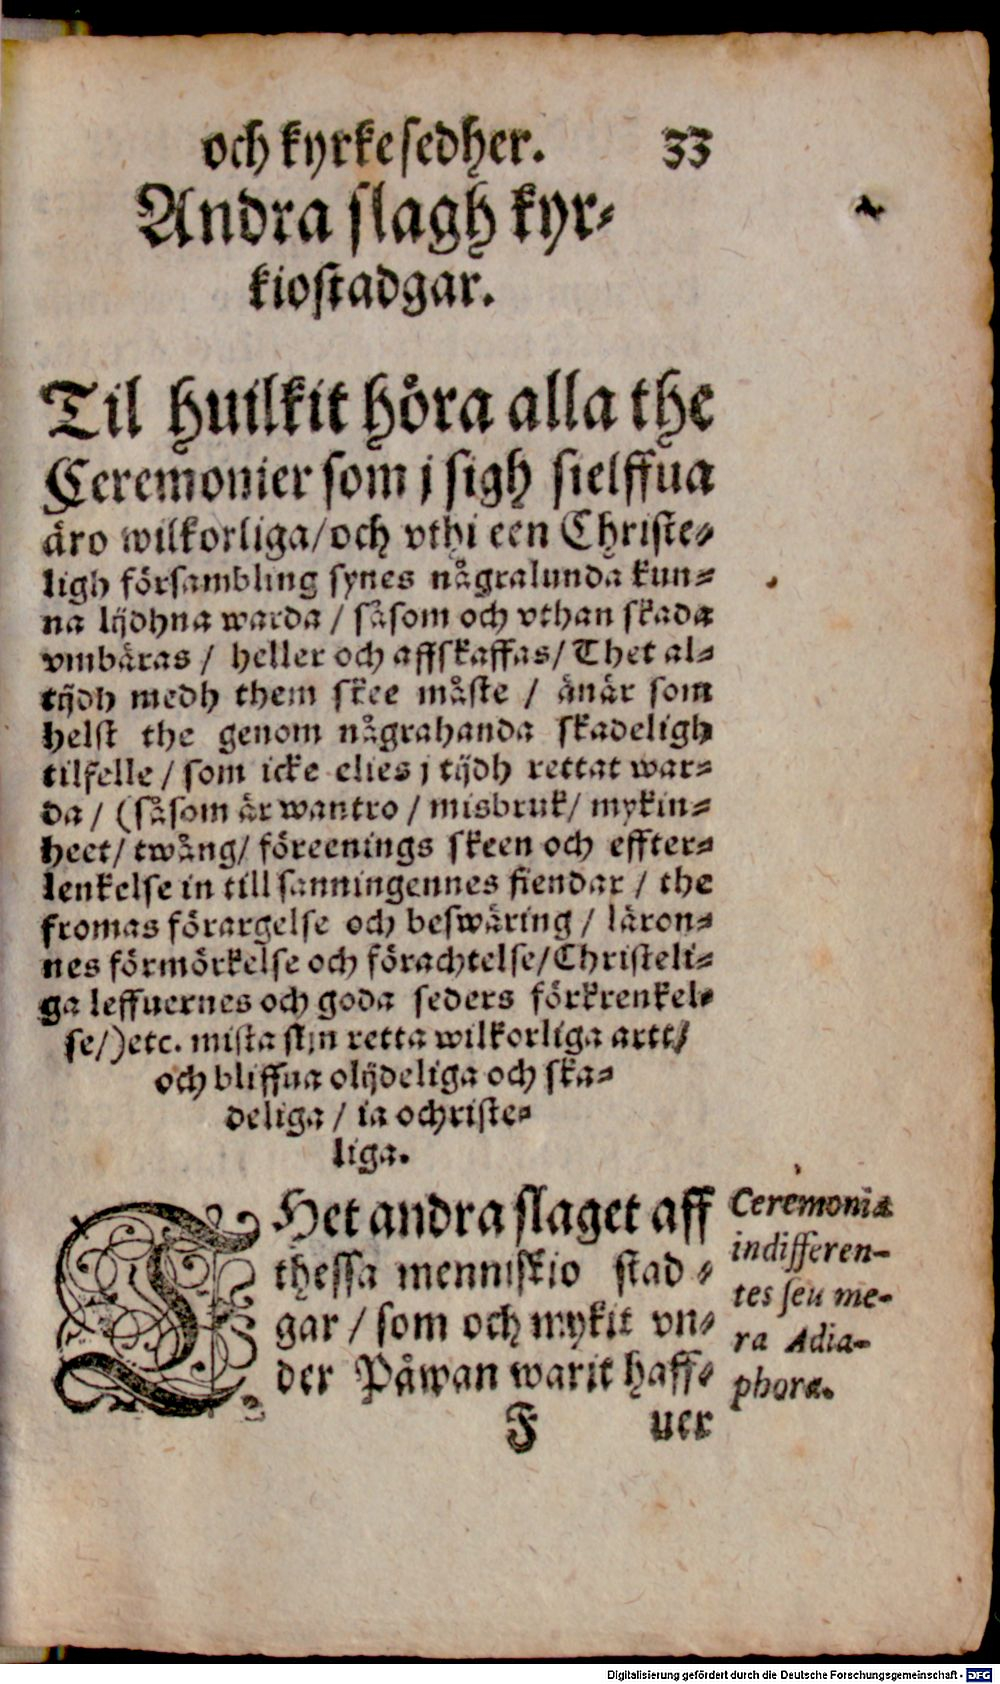 och kyrkesedher. 33
Andra slagh kyr-
kiostadgar.
Til huilkit höra alla the
Ceremonier som j sigh sielffua
äro wilkorliga/och vthi een Christe-
ligh försambling synes någralunda kun-
na lijdhna warda / såsom och vthan skada
vmbäras / heller och affskaffas/ Thet al-
tijdh medh them skee måste / änär som
helst the genom någrahanda skadeligh
tilfelle / som icke elies j tijdh rettat war-
da / (såsom är wantro / misbruk/ mykin-
heet/ twång/ föreenings skeen och effter-
lenkelse in till sanningennes fiendar / the
fromas förargelse och beswäring / läron-
nes förmörkelse och förachtelse/Christeli-
ga leffuernes och goda seders förkrenkel-
se/)etc. mista sijn retta wilkorliga artt/
och bliffua olijdeliga och ska-
deliga / ia ochriste-
liga.
THet andra slaget aff
thessa menniskio stad-
gar / som och mykit vn-
der Påwan warit haff-
F uer
Ceremoniæ
indifferen-
tes seu me-
ra Adia-
phora.
Digitalisierung gefördert durch die Deutsche Forschungsgemeinschaft - DFG